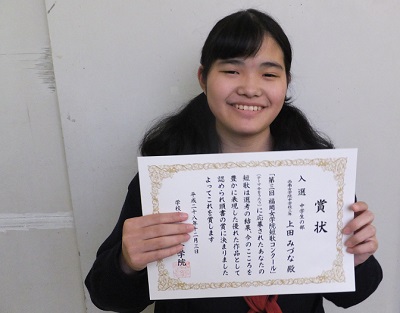 賞状
入選 中学生の部
上田 みづな 殿
「第三回 福岡女学院短歌コンクール」
に応募されたあなたの
短歌は選考の結果、今のこころを
豊かに表現した優れた作品として
認められ頭書の賞に決まりました
よってこれを賞します
平成二十八年十二月三日
学校
学院